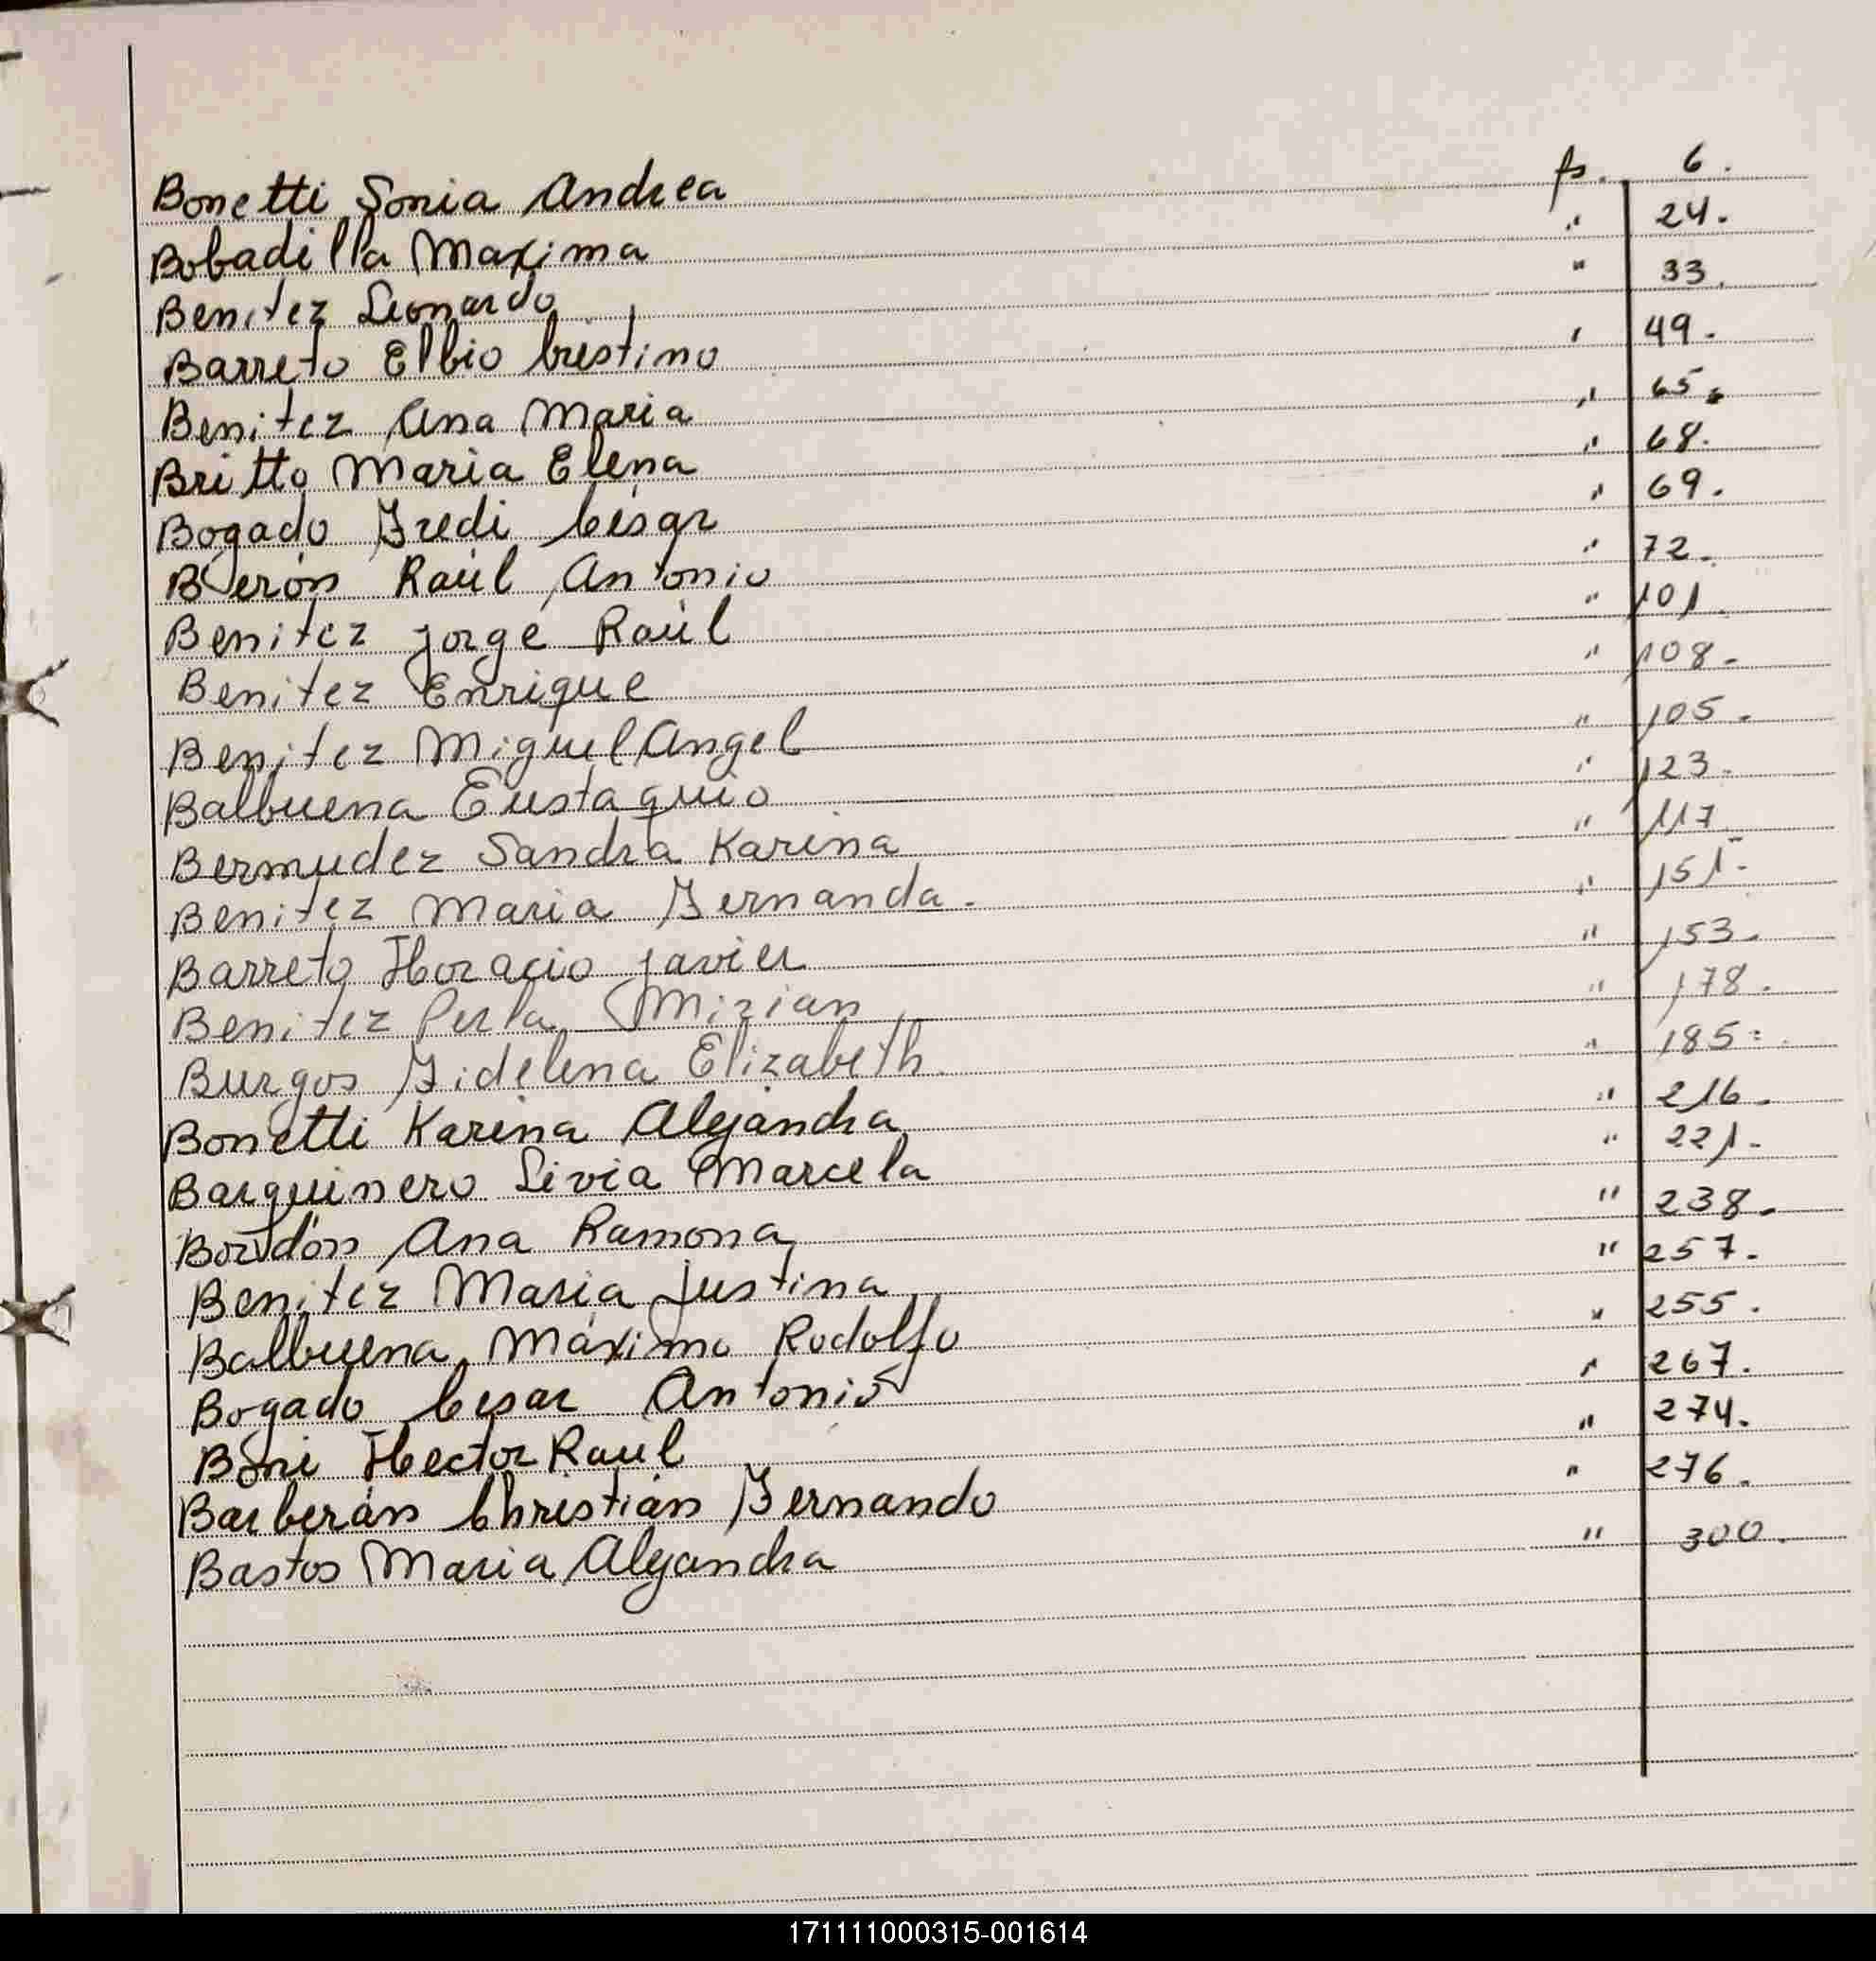 Bonetti Sonia Andrea fs. 6.
Bobadilla Maxima " 24.
Benitez Leonardo " 33.
Barreto Elbio Cristino " 49.
Benitez Ana Maria " 65.
Britto Maria Elena " 68.
Bogado Fredi César " 69.
Berón Raúl Antonio " 72.
Benitez Jorge Raúl " 101.
Benitez Enrique " 108.
Benitez Miguel Angel " 105.
Balbuena Eustaquio " 123.
Bermudez Sandra Karina " 117
Benitez Maria Fernanda. " 151.
Barreto Horacio Javier " 153.
Benitez Perla Mirian " 178.
Burgos Fidelena Elizabeth. " 185.
Bonetti Karina Alejandra " 216.
Barquinero Livia Marcela " 221.
Bordón Ana Ramona " 238.
Benitez Maria Justina " 257.
Balbuena Máximo Rodolfo " 255.
Bogado Cesar Antonio " 267.
Boni Hector Raul " 274.
Barberán Christian Fernando " 276.
Bastos Maria Alejandra " 300.
171111000315-001614